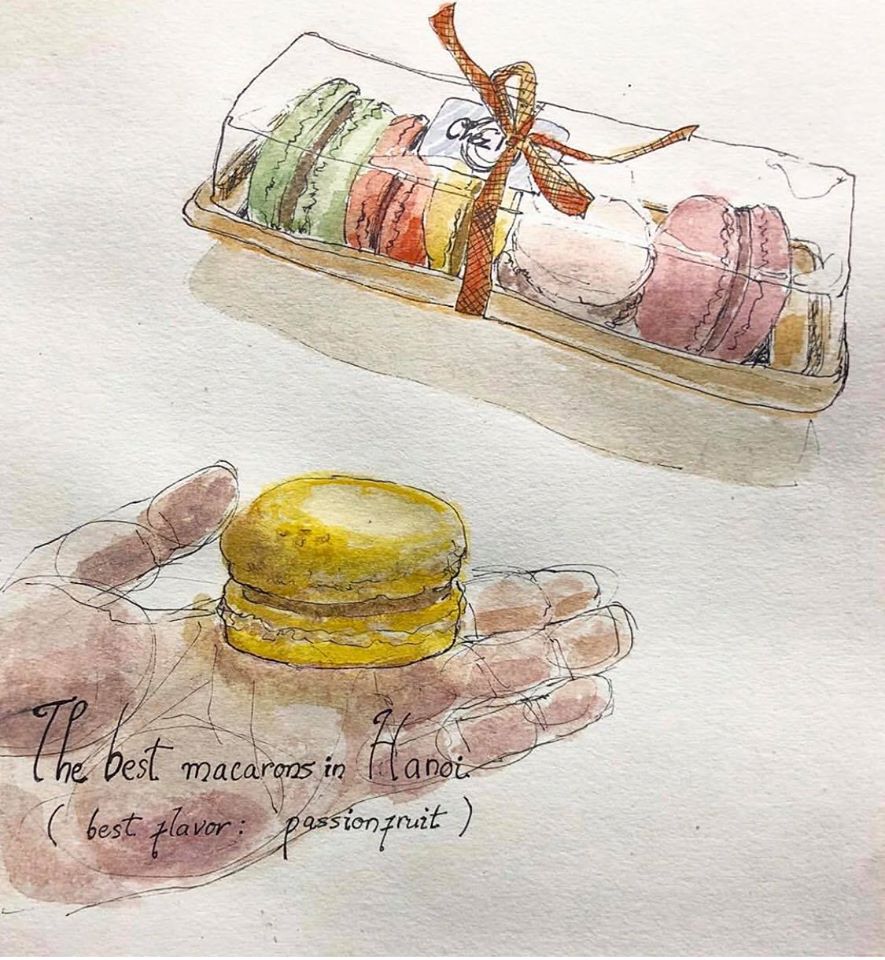 The best macarons in Hanoi
( best flavor: passionfruit )